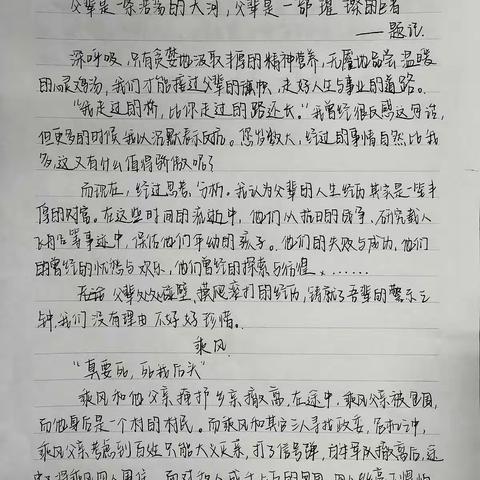 父辈是一条浩荡的大河，父辈是一部璀璨的巨著
——题记
深呼吸，只有贪婪地汲取丰厚的精神营养，无厌地品尝温暖
的心灵鸡汤，我们才能接过父辈的旗帜，走好人生与事业的道路。
"我走过的桥，比你走过的路还长。"我曾经很反感这句话，
但更多的时候我以沉默表示反抗。您岁数大，经过的事情自然比我
多，这又有什么值得骄傲呢？
而现在，经过思考、分析。我认为父辈的人生经历其实是一笔丰
厚的财富。在这些时间的流逝中，他们从抗日的战争、研究载人
飞船等事迹中，保佑他们年幼的孩子。他们的失败与成功，他们
的曾经的忧愁与欢乐，他们曾经的探索与彷徨、……
无论父辈处处碰壁、摸爬滚打的经历，铸就了吾辈的警示之
钟，我们没有理由不好好珍惜。
乘风
"真要死，死我后头"
乘风和他父亲掩护乡亲撤离，在途中，乘风父亲被包围，
而他身后是一个村的村民。而乘风和其它三人寻找政委，在扫行中，
乘风父亲考虑到百姓只能大义灭亲，打了信号弹，日军军队撤离后，这